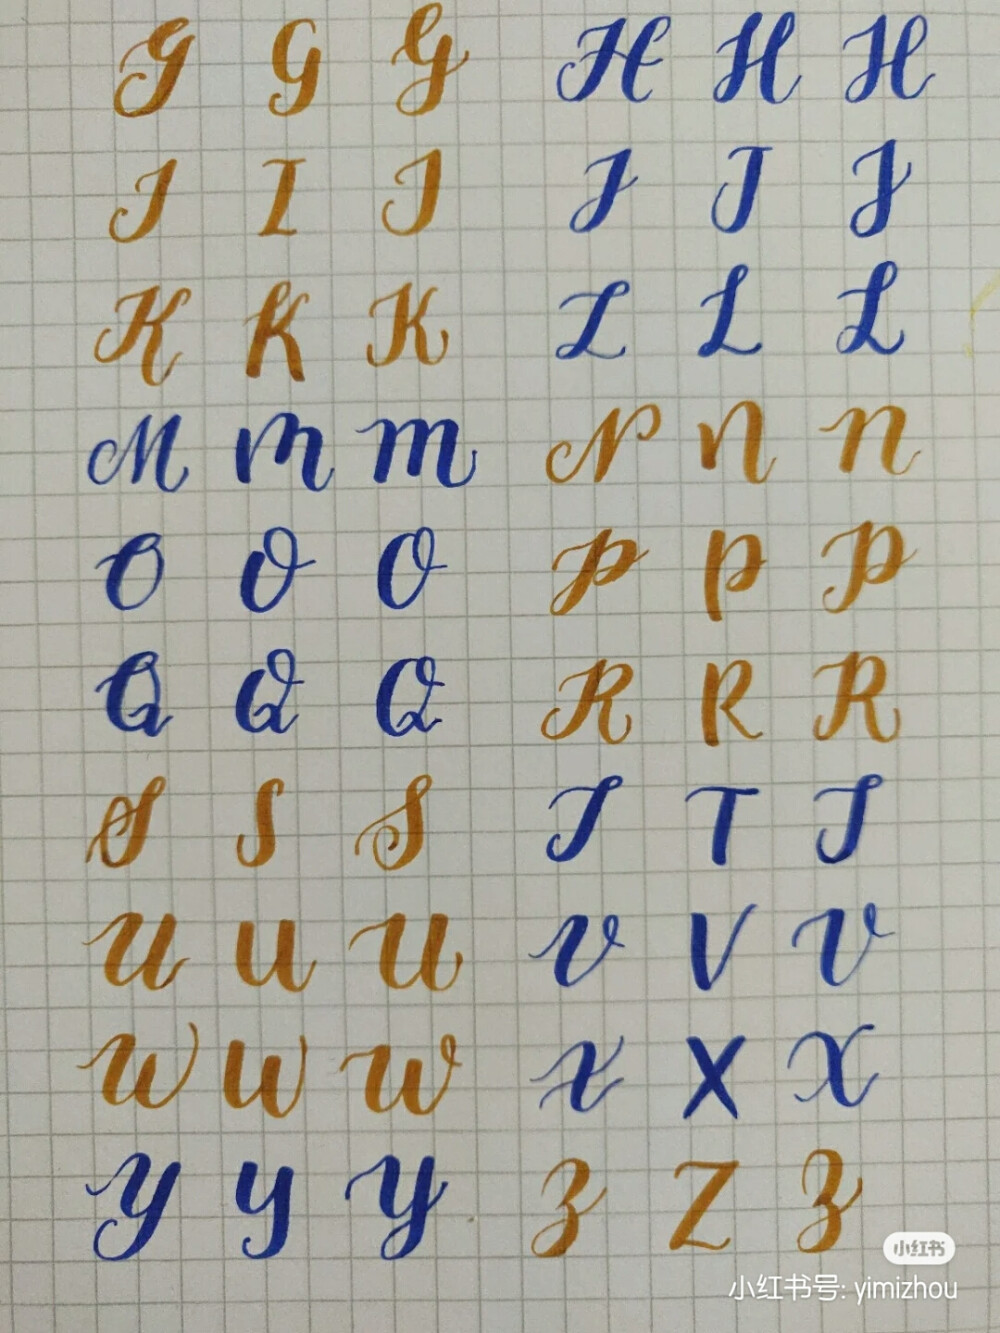 G G G H H H
I I I J J J
K K K L L L
M m m N n n
O O O P P P
Q Q Q R R R
S S S T T T
U U U V V V
W W W X X X
Y Y Y Z Z Z
小红书
小红书号: yimizhou